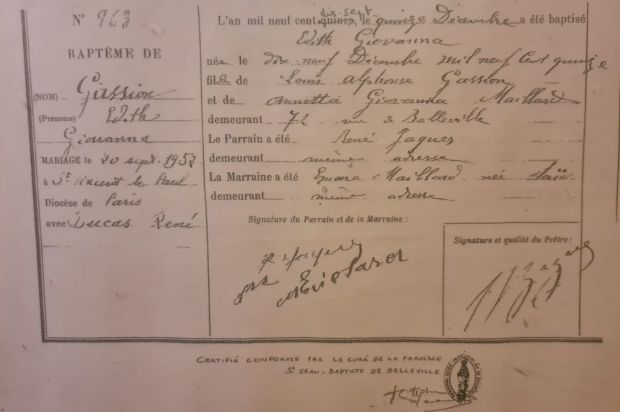 N° 963
BAPTÊME DE
(NOM) Gassion
(Prénoms) Edith
Giovanna
MARIAGE le 20 sept. 1952
à St Vincent de Paul
Diocèse de Paris
avec Ducas René
L'an mil neuf cent dix-sept, le quinze Décembre a été baptisé
Edith Giovanna
née le dix neuf Décembre mil neuf cent quinze
fille de Louis Alphonse Gassion
et de Annetta Giovanna Maillard
demeurant 72 rue de Belleville
Le Parrain a été René Jaques
demeurant même adresse
La Marraine a été Emma Maillard née Saïd
demeurant même adresse
Signature du Parrain et de la Marraine :
Signature et qualité du Prêtre :
CERTIFIÉ CONFORME PAR LE CURÉ DE LA PAROISSE
St JEAN-BAPTISTE DE BELLEVILLE